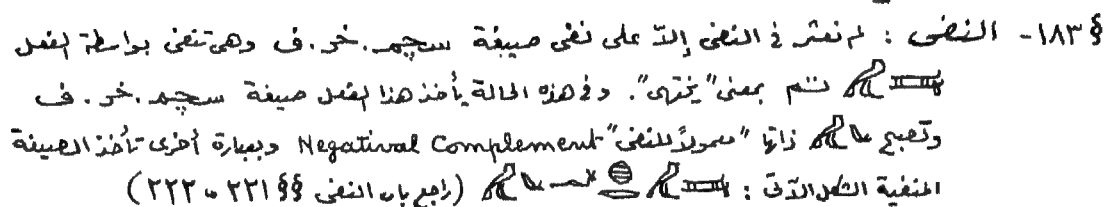 § ١٨٣- النفى : لم نعثر فى النفى إلا على نفى صيغة سچم.خر.ف وهى تنفى بواسطة الفعل
تم بمعنى "ينتهى". وفى هذه الحالة يأخذ هذا الفعل صيغة سچم.خر.ف
وتصبح ذاتها "معمولاً للنفى" Negatival Complement وبعبارة أخرى تأخذ الصيغة
المنفية الشكل الآتى : (راجع باب النفى §§ ٢٢١ ، ٢٢٢)